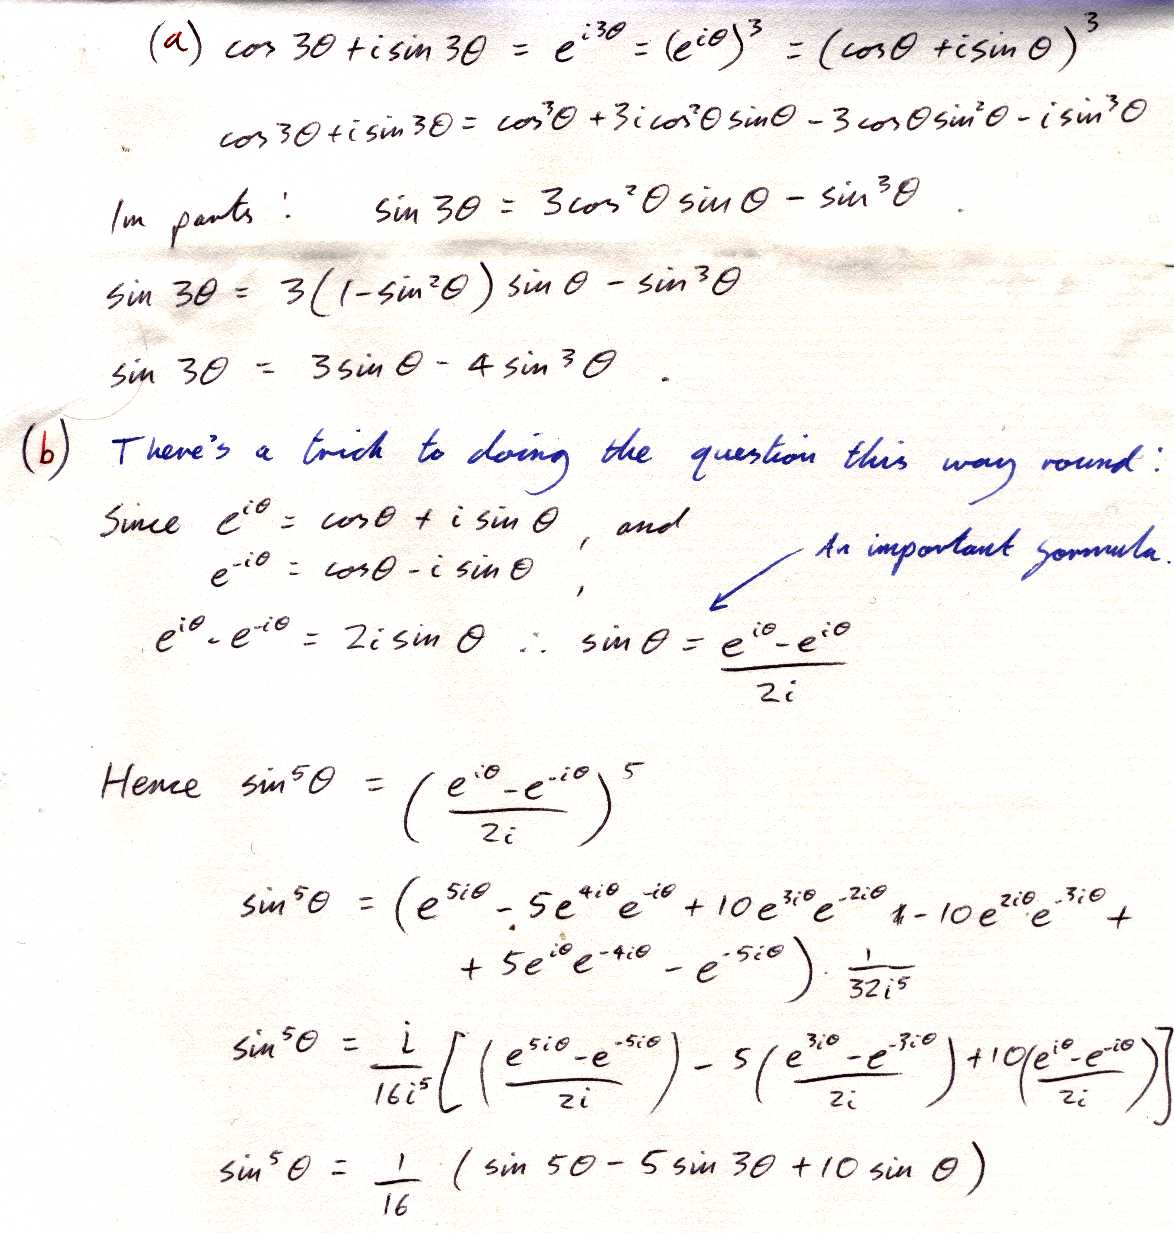 (a) cos 3θ + i sin 3θ = e^{i3θ} = (e^{iθ})^3 = (cosθ + i sin θ)^3
cos 3θ + i sin 3θ = cos^3θ + 3i cos^2θ sinθ - 3 cosθ sin^2θ - i sin^3θ
Im parts : sin 3θ = 3cos^2θ sin θ - sin^3θ .
sin 3θ = 3(1-sin^2θ) sin θ - sin^3θ
sin 3θ = 3 sin θ - 4 sin^3θ .
(b) There's a trick to doing the question this way round :
Since e^{iθ} = cosθ + i sin θ , and
An important formula.
e^{-iθ} = cosθ - i sin θ ,
e^{iθ} - e^{-iθ} = 2i sin θ ∴ sin θ = \frac{e^{iθ} - e^{iθ}}{2i}
Hence sin^5θ = (\frac{e^{iθ} - e^{-iθ}}{2i})^5
sin^5θ = (e^{5iθ} - 5e^{4iθ}e^{-iθ} + 10e^{3iθ}e^{-2iθ} - 10e^{2iθ}e^{-3iθ} +
+ 5e^{iθ}e^{-4iθ} - e^{-5iθ}) . \frac{1}{32i^5}
sin^5θ = \frac{i}{16i^5} [(\frac{e^{5iθ} - e^{-5iθ}}{2i}) - 5(\frac{e^{3iθ} - e^{-3iθ}}{2i}) + 10(\frac{e^{iθ} - e^{-iθ}}{2i})]
sin^5θ = \frac{1}{16} (sin 5θ - 5 sin 3θ + 10 sin θ)